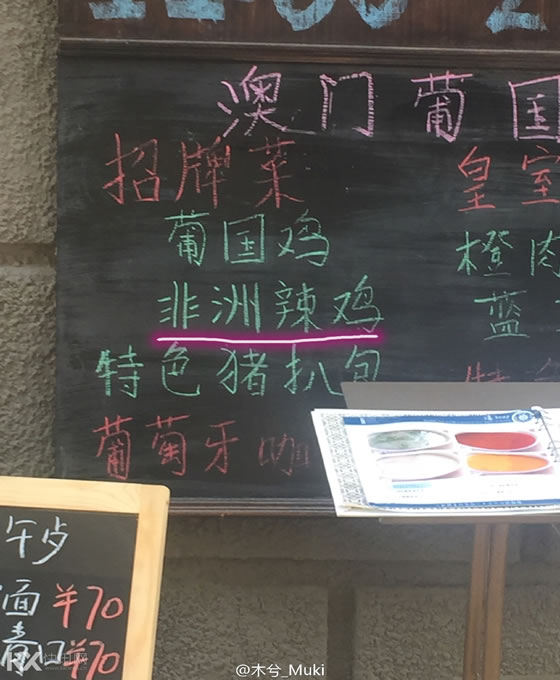 澳门葡国
招牌菜
皇室
葡国鸡
橙肉
非洲辣鸡
蓝
特色猪扒包
葡萄牙咖
午
面 ¥70
¥70
@木兮_Muki